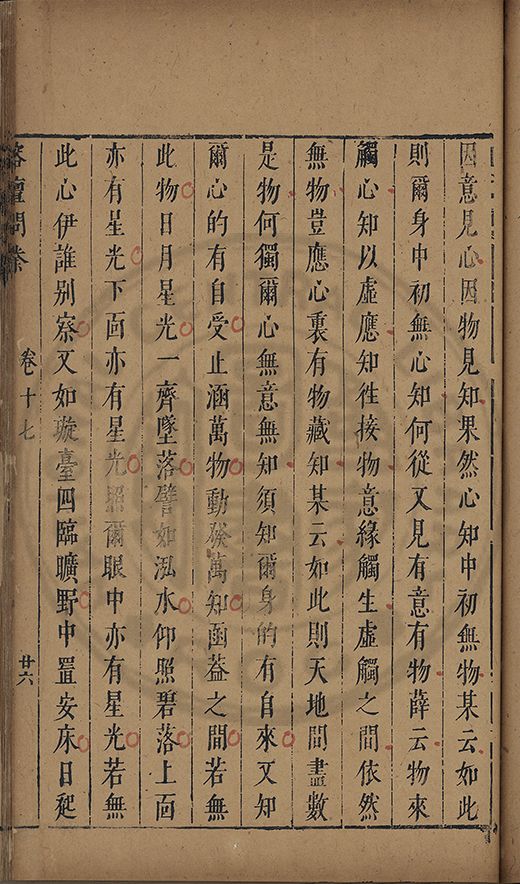 因意見心因物見知果然心知中初無物某云如此
則爾身中初無心知何從又見有意有物薛云物來
觸心知以虛應知徃接物意緣觸生虛觸之間依然
無物豈應心裏有物藏知某云如此則天地間盡數
是物何獨爾心無意無知須知爾身的有自來又知
爾心的有自受止涵萬物動發萬知函葢之間若無
此物日月星光一齊墜落譬如泓水仰照碧落上面
亦有星光下面亦有星光照爾眼中亦有星光若無
此心伊誰別察又如璇臺四臨曠野中置安床日起
榕壇問業
卷十七
廿六